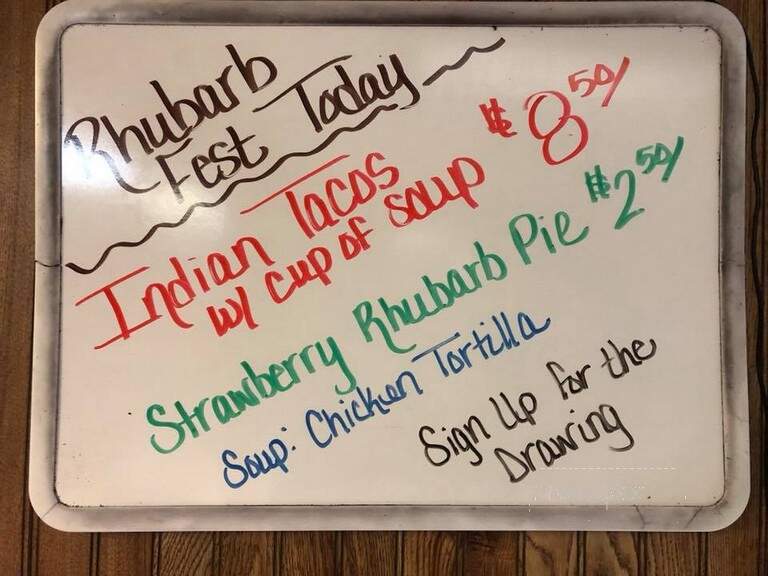 Rhubarb
Fest Today
Indian Tacos $8 50/
w/ cup of soup
Strawberry Rhubarb Pie $2 50/
Soup: Chicken Tortilla
Sign Up for the
Drawing